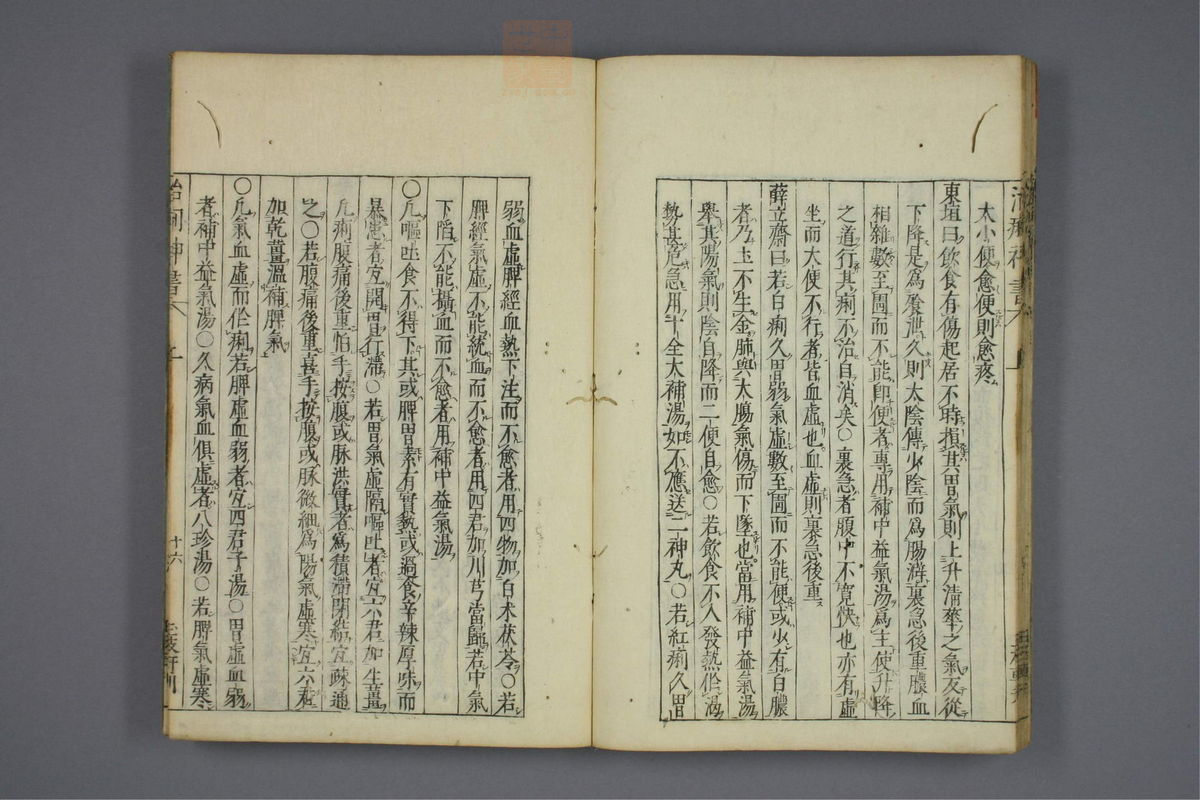 大小便愈便則愈疼
東垣曰飲食有傷起居不時損其胃氣則上升清華之氣反從
下降是為飱泄久則太陰傳少陰而為腸澼裏急後重膿血
相雜數至圊而不能即便者專用補中益氣湯為主使升降
之道行其痢不治自消矣○裏急者腹中不寬快也亦有虛
坐而大便不行者皆血虛也血虛則裏急後重
薛立齋曰若白痢久胃弱氣虛數至圊而不能便或少有白膿
者乃土不生金肺與大腸氣傷而下墜也當用補中益氣湯
舉其陽氣則陰自降而二便自愈○若飲食不入發熱作渴
勢甚危急用十全大補湯如不應送二神丸○若紅痢久胃
弱血虛脾經血熱下注而不愈者用四物加白朮茯苓○若
脾經氣虛不能統血而不愈者用四君加川芎當歸若中氣
下陷不能攝血而不愈者用補中益氣湯
○凡嘔吐食不得下其或脾胃素有實熱或過食辛辣厚味而
暴患者宜開胃行滯○若胃氣虛膈嘔吐者宜六君加生薑
凡痢腹痛後重怕手按腹或脉洪實者為積滯閉結宜疎通
之○若腹痛後重喜手按腹或脉微細為陽氣虛寒宜六君
加乾薑溫補脾氣
○凡氣血虛而作痢若脾虛血弱者宜四君子湯○胃虛血弱
者補中益氣湯○久病氣血俱虛者八珍湯○若脾氣虛寒
治痢神書
十六